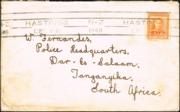 HASTINGS N-Z HASTINGS
W. Fernandes,
Police Headquarters,
Dar-Es-Salaam,
Tanganyika,
South Africa.